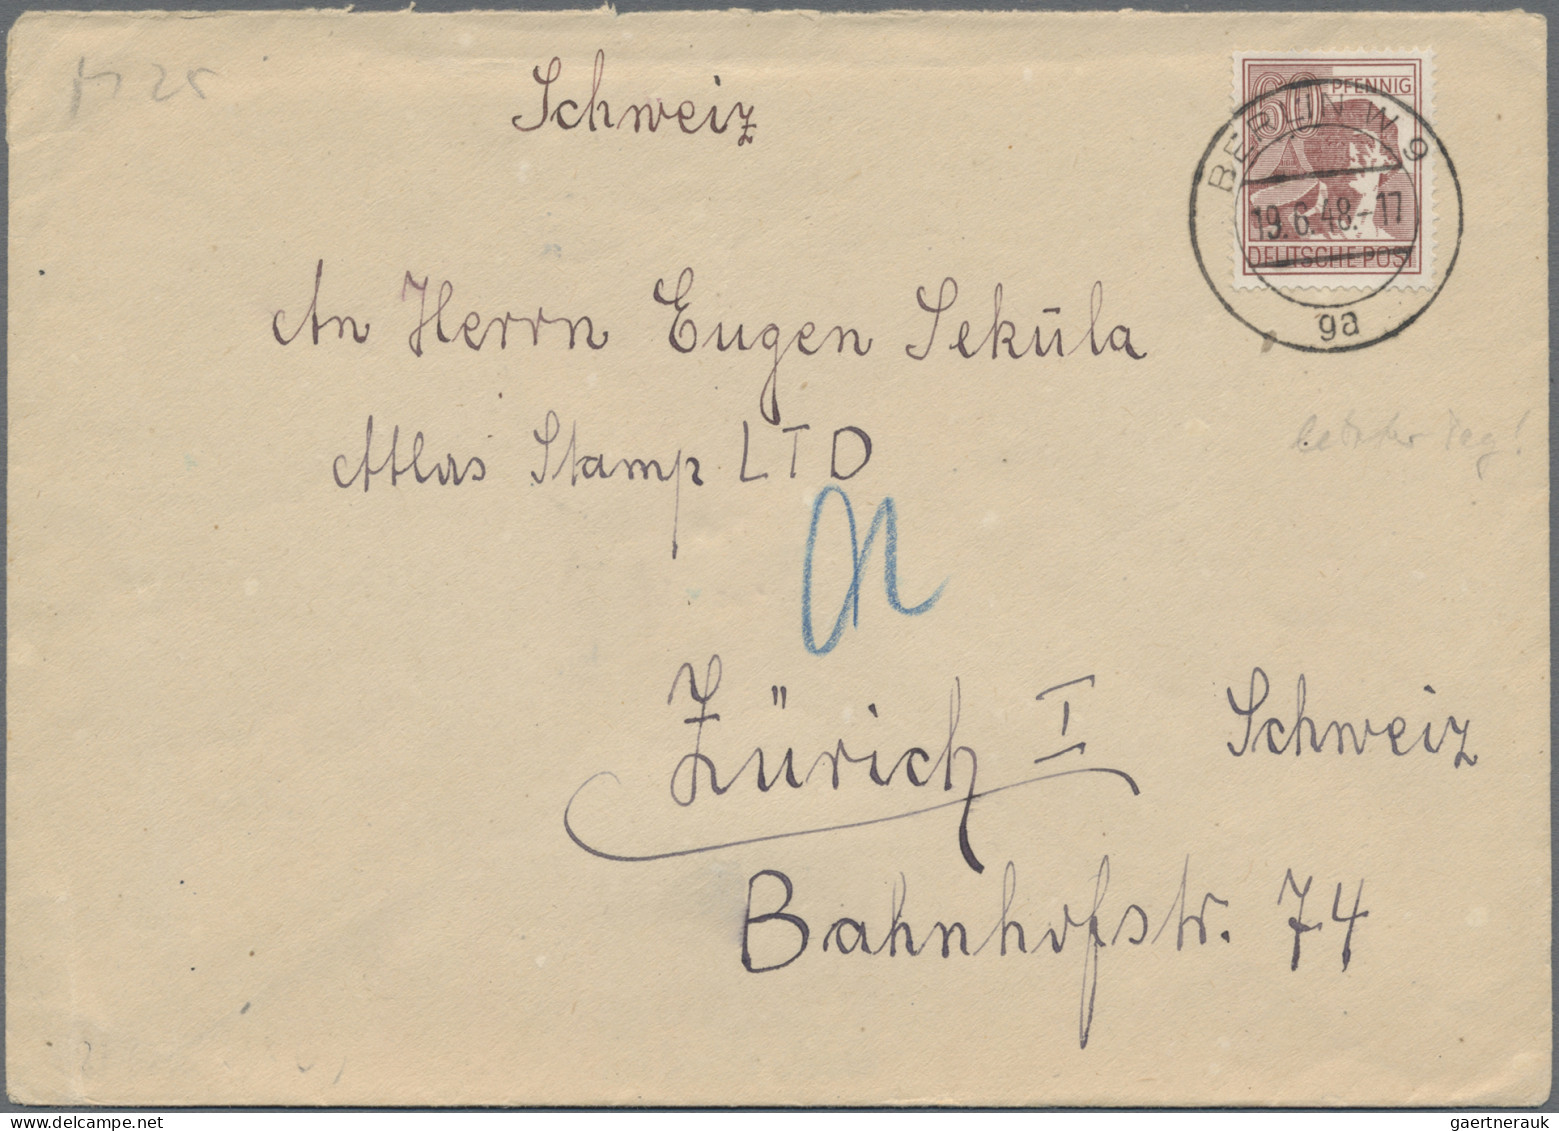 Schweiz
60 PFENNIG
BERLIN W 9
19.6.48.-17
DEUTSCHE POST
ga
An Herrn Eugen Sekūla
Atlas Stamp LTD
letzter Tag!
Zürich I Schweiz
Bahnhofstr. 74
gaertnerauk